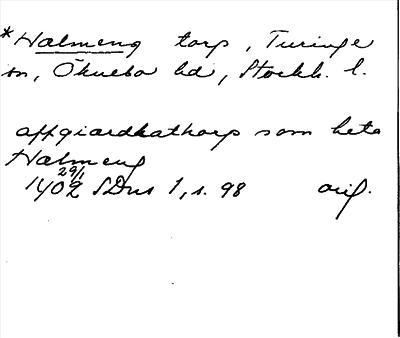 *Halmeng torp, Turinge
sn, Öknebo hd, Stockh. l.
aff giærdhathorp som heta
Halmeng
29/1
1402 SDns 1, s. 98 orig.